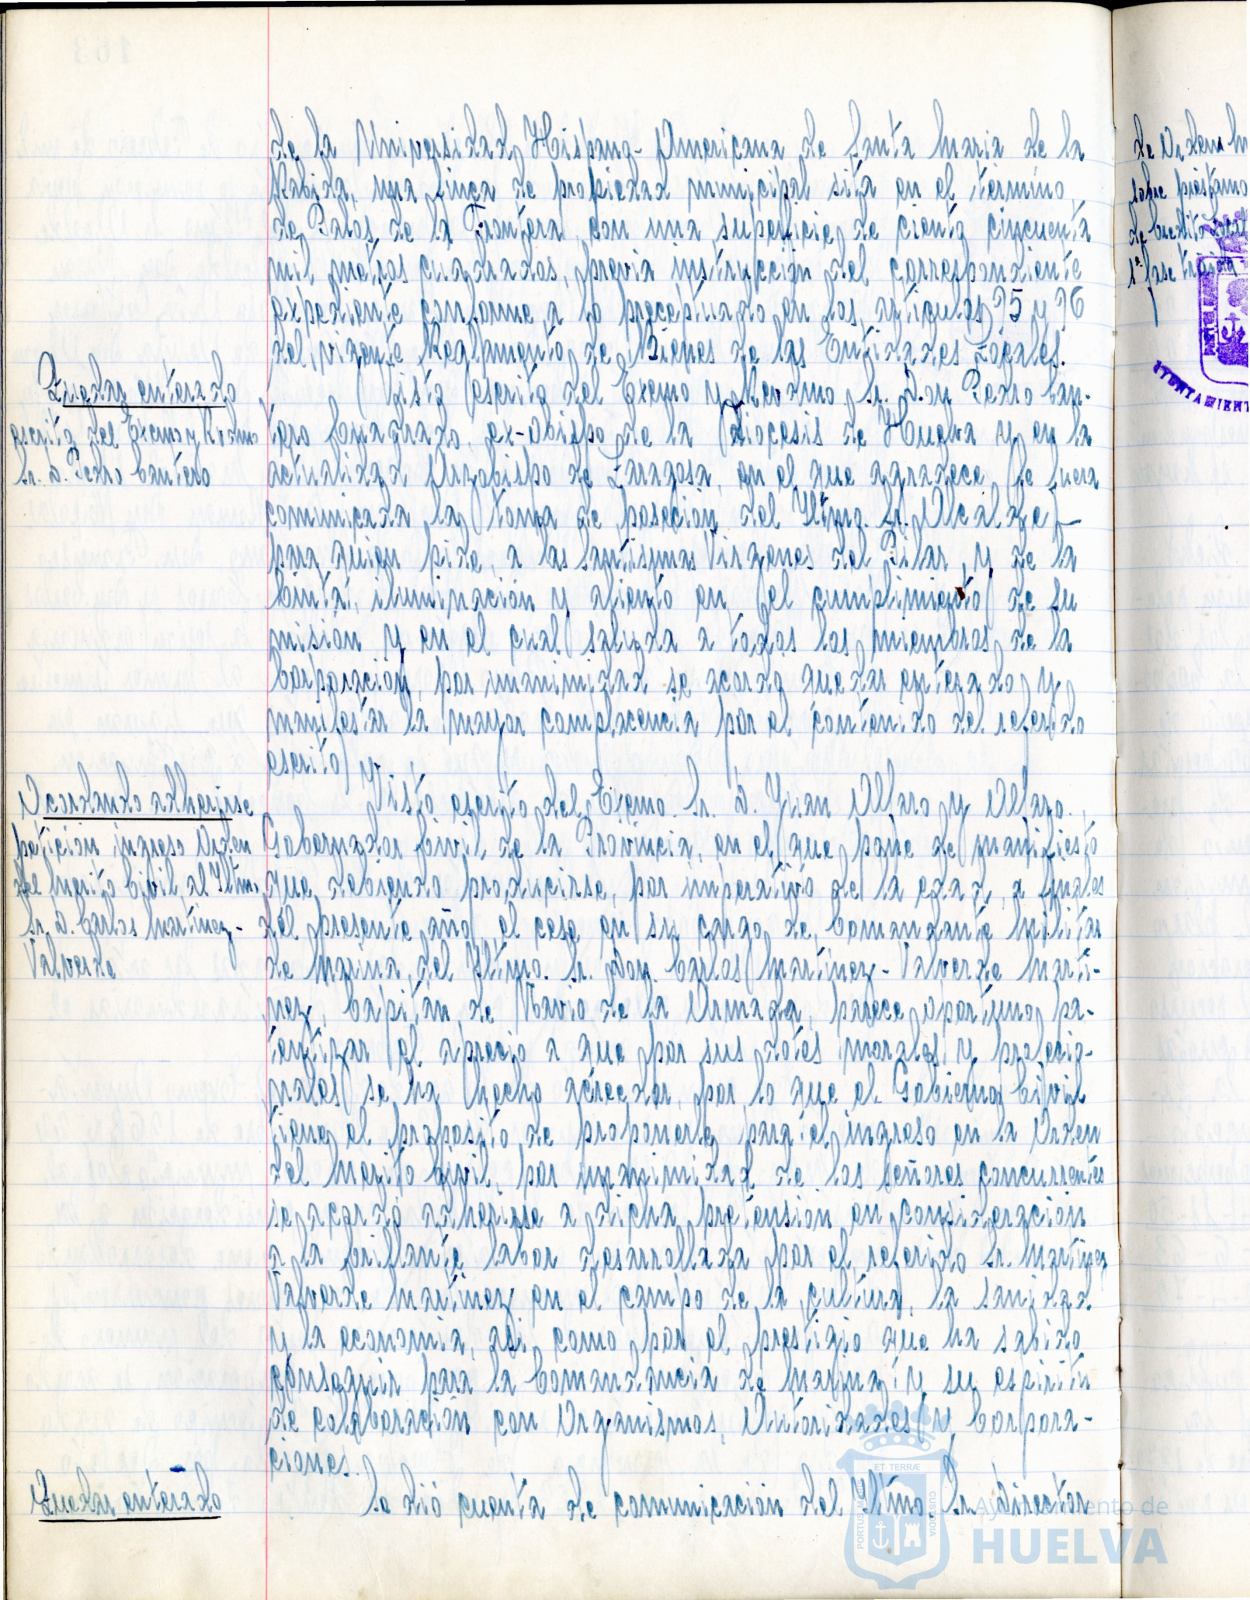 de la Universidad Hispano-Americana de Santa Maria de la
Rabida, una finca de propiedad municipal sita en el termino,
de Palos de la Frontera, con una superficie de ciento cincuenta
mil metros cuadrados, previa instrucción del correspondiente
expediente conforme a lo preceptuado en los articulos 95 y 96
del vigente Reglamento de Bienes de las Entidades Locales.
Quedar enterado
escrito del Excmo y Rvdmo
Sr. D. Pedro Cantero
Visto escrito del Excmo y Revdmo Sr. Don Pedro Can-
tero Cuadrado, ex-Obispo de la Diocesis de Huelva y en la
actualidad Arzobispo de Zaragoza, en el que agradece le fuera
comunicada la toma de posesión del Iltmo. Sr. Alcalde,
para quien pide, a las Santisimas Virgenes del Pilar, y de la
Cinta, iluminación y aliento en el cumplimiento de su
misión y en el cual saluda a todos los miembros de la
Corporación, por unanimidad se acordó quedar enterado y
manifestar la mayor complacencia por el contenido del referido
escrito.
Acordando adherirse
petición ingreso Orden
del Merito Civil al Iltmo.
Sr. D. Carlos Martinez-
Valverde
Visto escrito del Excmo. Sr. D. Juan Alfaro y Alfaro,
Gobernador Civil de la Provincia, en el que pone de manifiesto
que debiendo producirse, por imperativo de la edad, a finales
del presente año el cese en su cargo de Comandante Militar
de Marina, del Iltmo. Sr. Don Carlos Martinez-Valverde Marti-
nez, Capitán de Navio de la Armada, parece oportuno pa-
tentizar el aprecio a que por sus dotes morales y profesio-
nales se ha hecho acreedor, por lo que el Gobierno Civil
tiene el proposito de proponerle para el ingreso en la Orden
del Merito Civil, por unanimidad de los señores concurrentes
se acordó adherirse a dicha pretensión en consideración
a la brillante labor desarrollada por el referido Sr. Martinez
Valverde Martinez en el campo de la cultura, la sanidad
y la economia, asi como por el prestigio que ha sabido
conseguir para la Comandancia de Marina y su espiritu
de colaboración con Organismos, Autoridades y Corpora-
ciones.
Quedar enterado
Se dió cuenta de comunicación del Iltmo. Sr. Director
de Orden M
sobre prestamo
de Credito Local
1ª fase
AYUNTAMIENT
ET TERRÆ
PORTUS MARIS
CUSTODIA
Ayuntamiento de
HUELVA